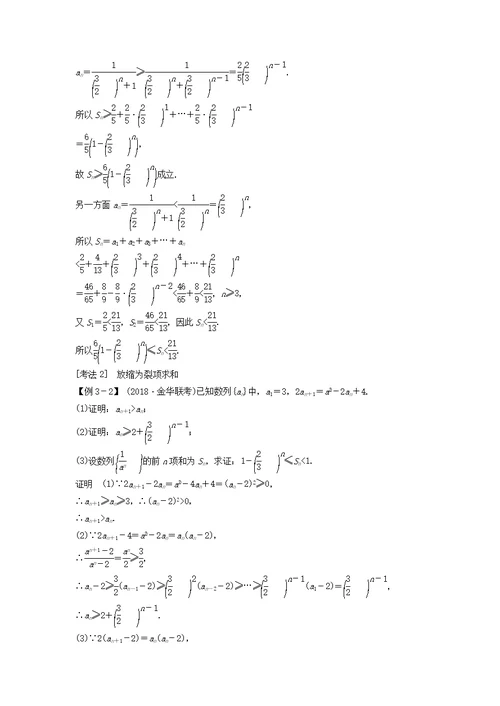 aₙ=1/((3/2)ⁿ+1)≥1/((3/2)ⁿ+(3/2)ⁿ⁻¹)=2/5(2/3)ⁿ⁻¹.
所以Sₙ≥2/5+2/5·(2/3)¹+…+2/5·(2/3)ⁿ⁻¹
=6/5(1-(2/3)ⁿ),
故Sₙ≥6/5(1-(2/3)ⁿ)成立.
另一方面aₙ=1/((3/2)ⁿ+1)<1/(3/2)ⁿ=(2/3)ⁿ,
所以Sₙ=a₁+a₂+a₃+…+aₙ
<2/5+4/13+(2/3)³+(2/3)⁴+…+(2/3)ⁿ
=46/65+8/9-8/9·(2/3)ⁿ⁻²<46/65+8/9<21/13, n≥3,
又S₁=2/5<21/13, S₂=46/65<21/13, 因此Sₙ<21/13.
所以6/5(1-(2/3)ⁿ)≤Sₙ<21/13.
[考法2] 放缩为裂项求和
【例3-2】 (2018·金华联考)已知数列{aₙ}中, a₁=3, 2aₙ₊₁=a²-2aₙ+4.
(1)证明: aₙ₊₁>aₙ;
(2)证明: aₙ≥2+(3/2)ⁿ⁻¹;
(3)设数列{1/aₙ}的前n项和为Sₙ, 求证: 1-(2/3)ⁿ≤Sₙ<1.
证明 (1)∵2aₙ₊₁-2aₙ=a²-4aₙ+4=(aₙ-2)²≥0,
∴aₙ₊₁≥aₙ≥3, ∴(aₙ-2)²>0,
∴aₙ₊₁>aₙ.
(2)∵2aₙ₊₁-4=a²-2aₙ=aₙ(aₙ-2),
∴(aₙ₊₁-2)/(aₙ-2)=aₙ/2≥3/2,
∴aₙ-2≥3/2(aₙ₋₁-2)≥(3/2)²(aₙ₋₂-2)≥…≥(3/2)ⁿ⁻¹(a₁-2)=(3/2)ⁿ⁻¹,
∴aₙ≥2+(3/2)ⁿ⁻¹.
(3)∵2(aₙ₊₁-2)=aₙ(aₙ-2),